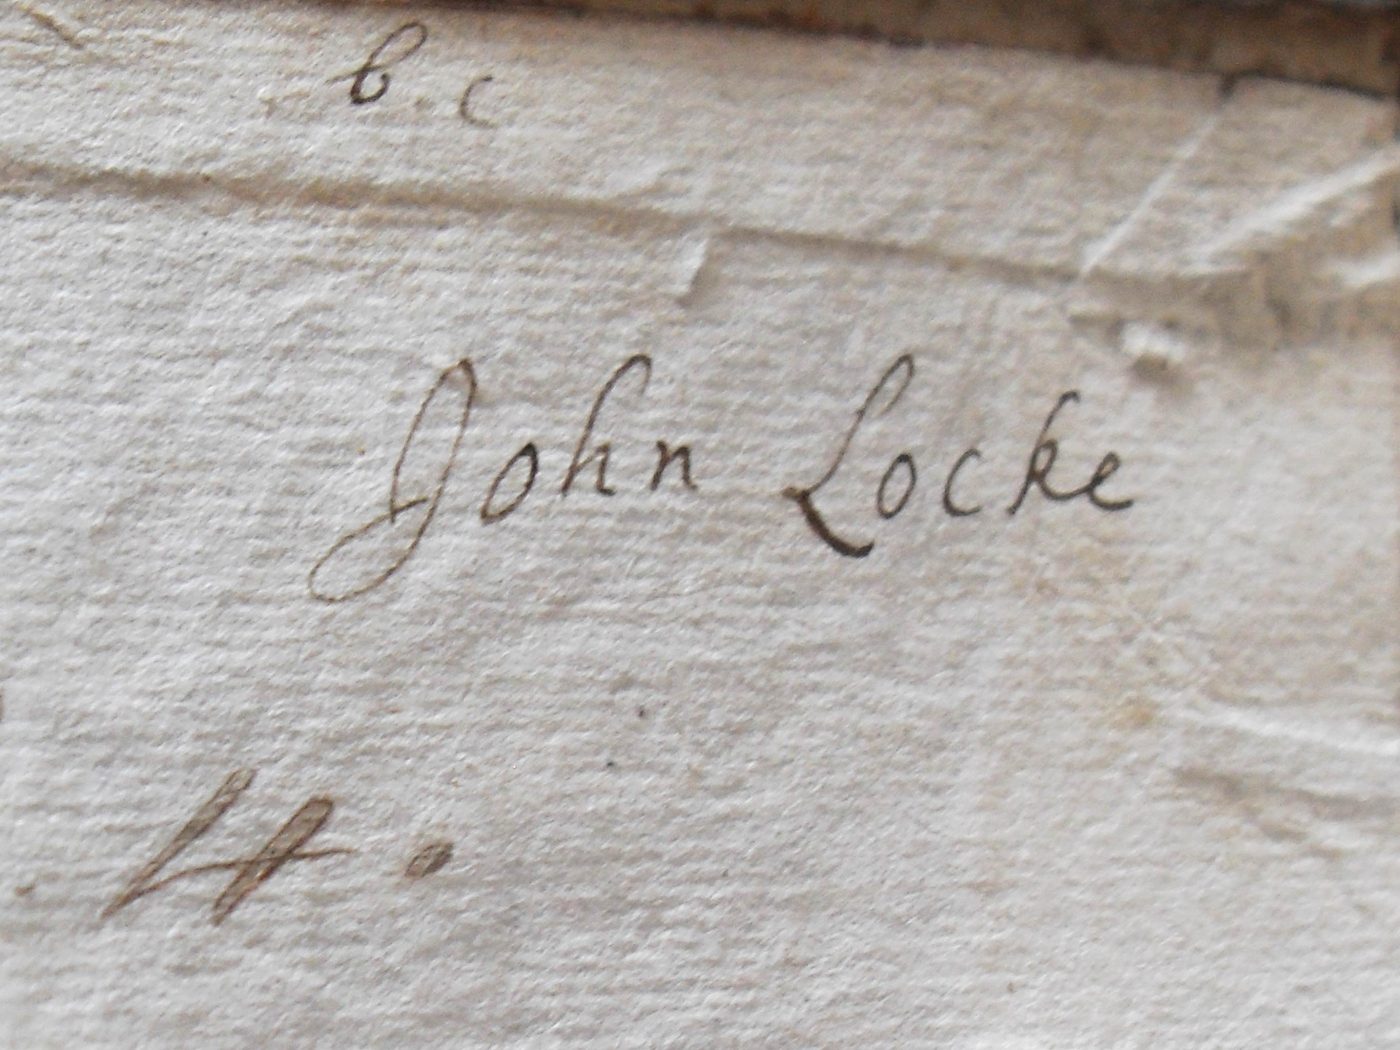 b. c
John Locke
H.